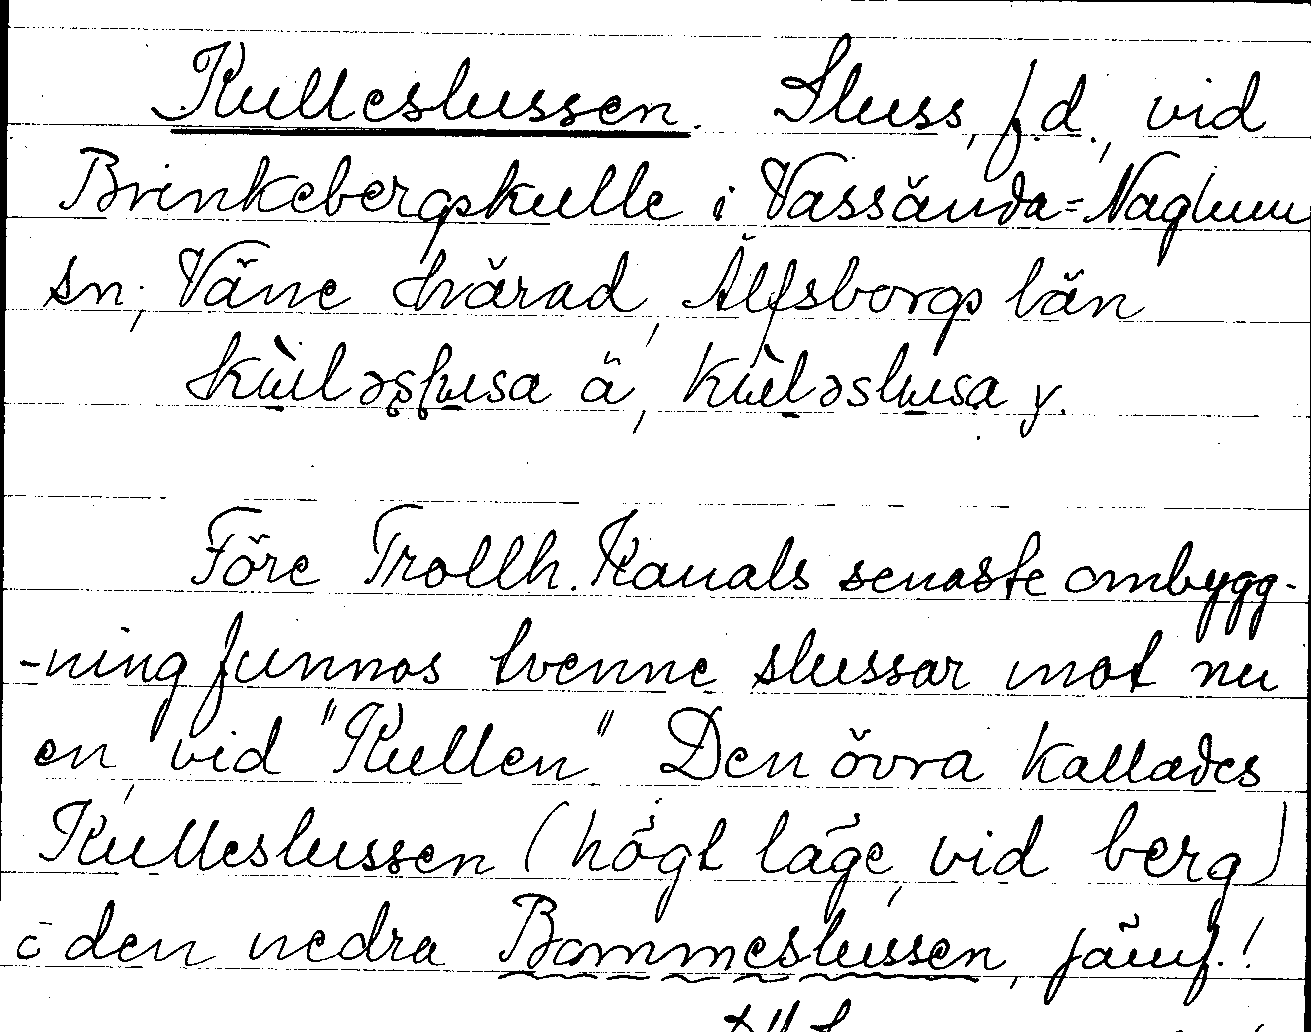 Kulleslussen. Sluss, f.d., vid
Brinkebergskulle i Vassända=Naglum
sn; Väne härad, Älfsborgs län
kùləslusa ä, kùləslusa y.
Före Trollh. Kanals senaste ombygg-
-ning funnos tvenne slussar mot nu
en, vid "Kullen". Den övra kallades
Kulleslussen (högt läge, vid berg)
o den nedra Bommeslussen, jämf.!